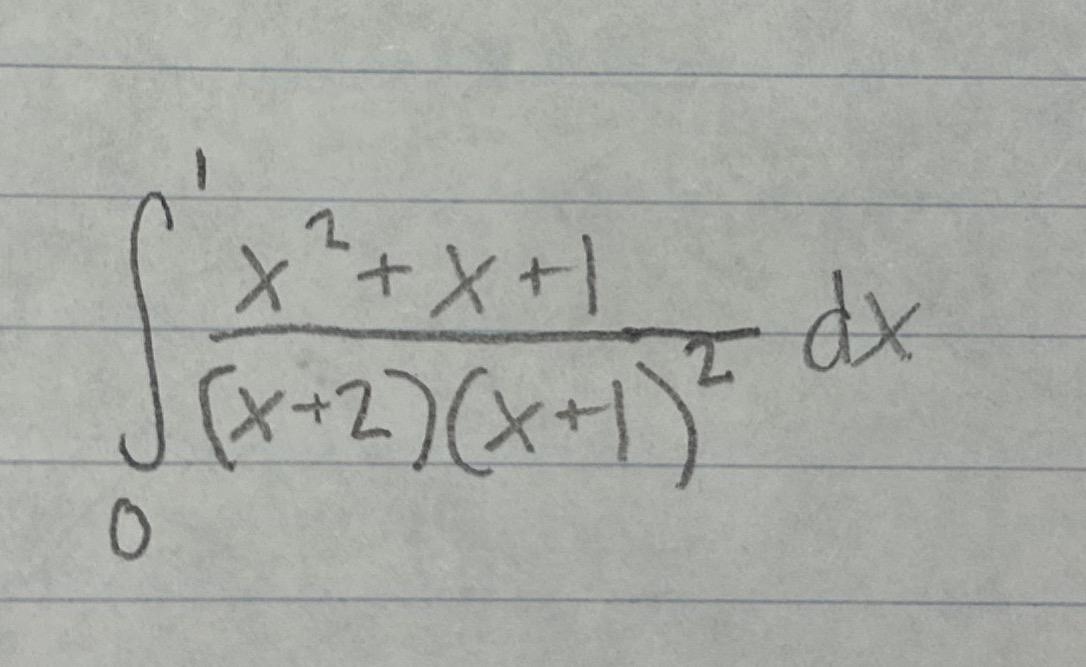 ∫₀¹ (x² + x + 1) / ((x+2)(x+1)²) dx